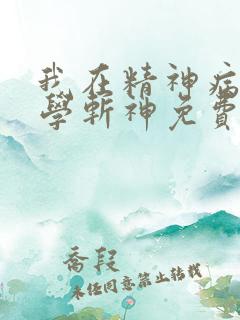 我在精神病
學斬神免費
喬段
未经同意禁止转载